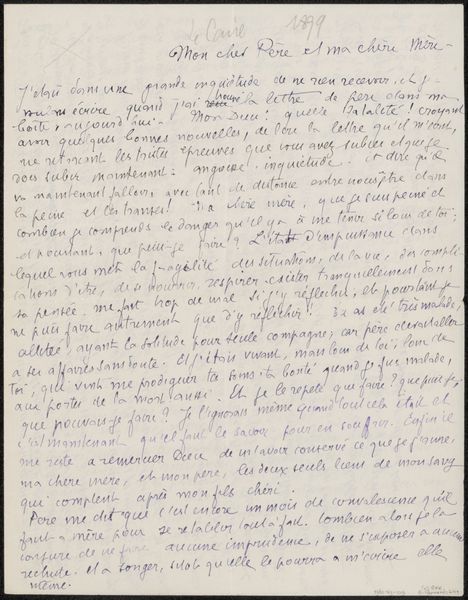 Le Caire 1899
Mon cher Père et ma chère Mère -
J'étais dans une grande inquiétude de ne rien recevoir, et je
voulais écrire quand j'ai trouvé la lettre de père dans ma
boîte, aujourd'hui - Mon Dieu! quelle fatalité! croyant
avoir quelques bonnes nouvelles, de lire la lettre qu'il m'écrit,
me retraçant les tristes épreuves que vous avez subies et que je
dois subir maintenant: angoisse, inquiétude. Et dire qu'il
va maintenant falloir, avec tant de distance entre nous, être dans
la peine et les transes! Ma chère mère, que je suis peiné et
combien je comprends le danger qu'il y a à me tenir si loin de toi;
et pourtant, que puis-je faire? L'état d'impuissance dans
lequel nous met la fragilité des situations, de la vie, des compli
cations d'être, de se nourrir, respirer exister tranquillement dans
sa pensée, me fait trop de mal si j'y réfléchis, et pourtant je
ne puis faire autrement que d'y réfléchir! Tu as été très malade,
alitée, ayant la solitude pour seule compagne; car père devait aller
à ses affaires sans doute. Et j'étais vivant, mais loin de toi, loin de
toi, qui vint me prodiguer tes soins ta bonté quand je fus malade,
aux portes de la mort aussi. Et je le répète que faire? que puis-je,
que pouvais-je faire? Je l'ignorais même quand tout cela était et
c'est maintenant qu'il faut le savoir pour en souffrir. Enfin il
me reste à remercier Dieu de m'avoir conservé ce que j'aime,
ma chère mère, et mon père, les deux seuls liens de mon sang
qui comptent après mon fils chéri.
Père me dit que c'est encore un mois de convalescence qu'il
faut à mère pour se rétablir tout à fait. Combien alors je la
conjure de ne faire aucune imprudence, de ne s'exposer à aucune
rechute. Et à songer, sitôt qu'elle le pourra à m'écrire elle
même.